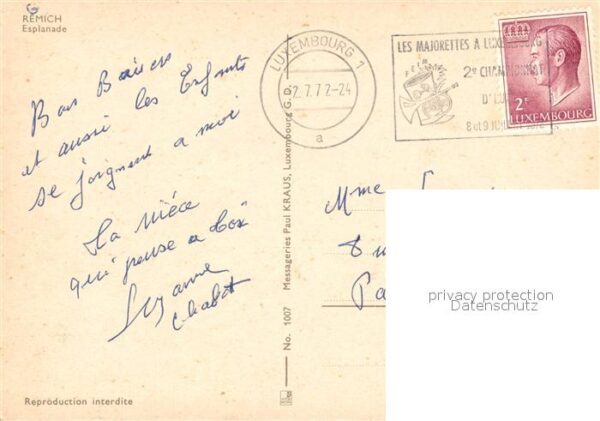 REMICH
Esplanade
Bons Baisers
et aussi les Enfants
se joignent a moi
La Nièce
qui pense a toi
Suzanne
Chabot
Reproduction interdite
No. 1007 Messageries Paul KRAUS, Luxembourg G. D.
LUXEMBOURG 1
2.7.72-24
a
LES MAJORETTES A LUXEMBOURG
2e CHAMPIONNAT
D'
8 et 9
2F
LUXEMBOURG
Mme
privacy protection
Datenschutz